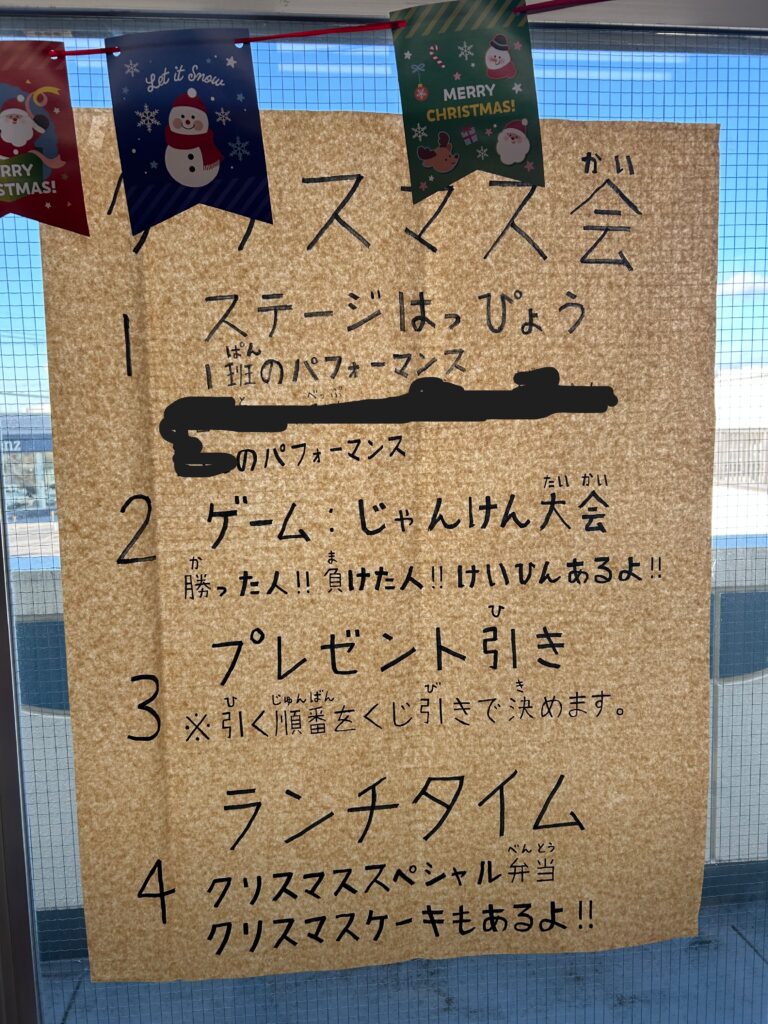 Let it Snow
MERRY
CHRISTMAS!
RRY
STMAS!
かい
クリスマス会
1 ステージはっぴょう
ぱん
1班のパフォーマンス
のパフォーマンス
たい かい
2 ゲーム:じゃんけん大会
か ま
勝った人!! 負けた人!! けいひんあるよ!!
ひ
3 プレゼント引き
ひ じゅんばん び き
※引く順番をくじ引きで決めます。
ランチタイム
べんとう
4 クリスマススペシャル弁当
クリスマスケーキもあるよ!!